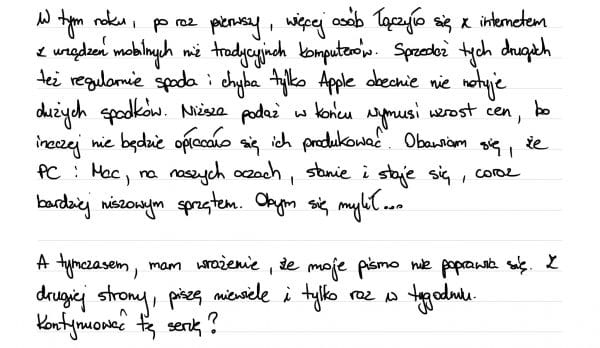 W tym roku, po raz pierwszy, więcej osób łączyło się z internetem
z urządzeń mobilnych niż tradycyjnch komputerów. Sprzedaż tych drugich
też regularnie spada i chyba tylko Apple obecnie nie notuje
dużych spadków. Niższa podaż w końcu wymusi wzrost cen, bo
inaczej nie będzie opłacało się ich produkować. Obawiam się, że
PC i Mac, na naszych oczach, stanie i staje się, coraz
bardziej niszowym sprzętem. Obym się mylił...
A tymczasem, mam wrażenie, że moje pismo nie poprawia się. Z
drugiej strony, piszę niewiele i tylko raz w tygodniu.
Kontynuować tę serię?